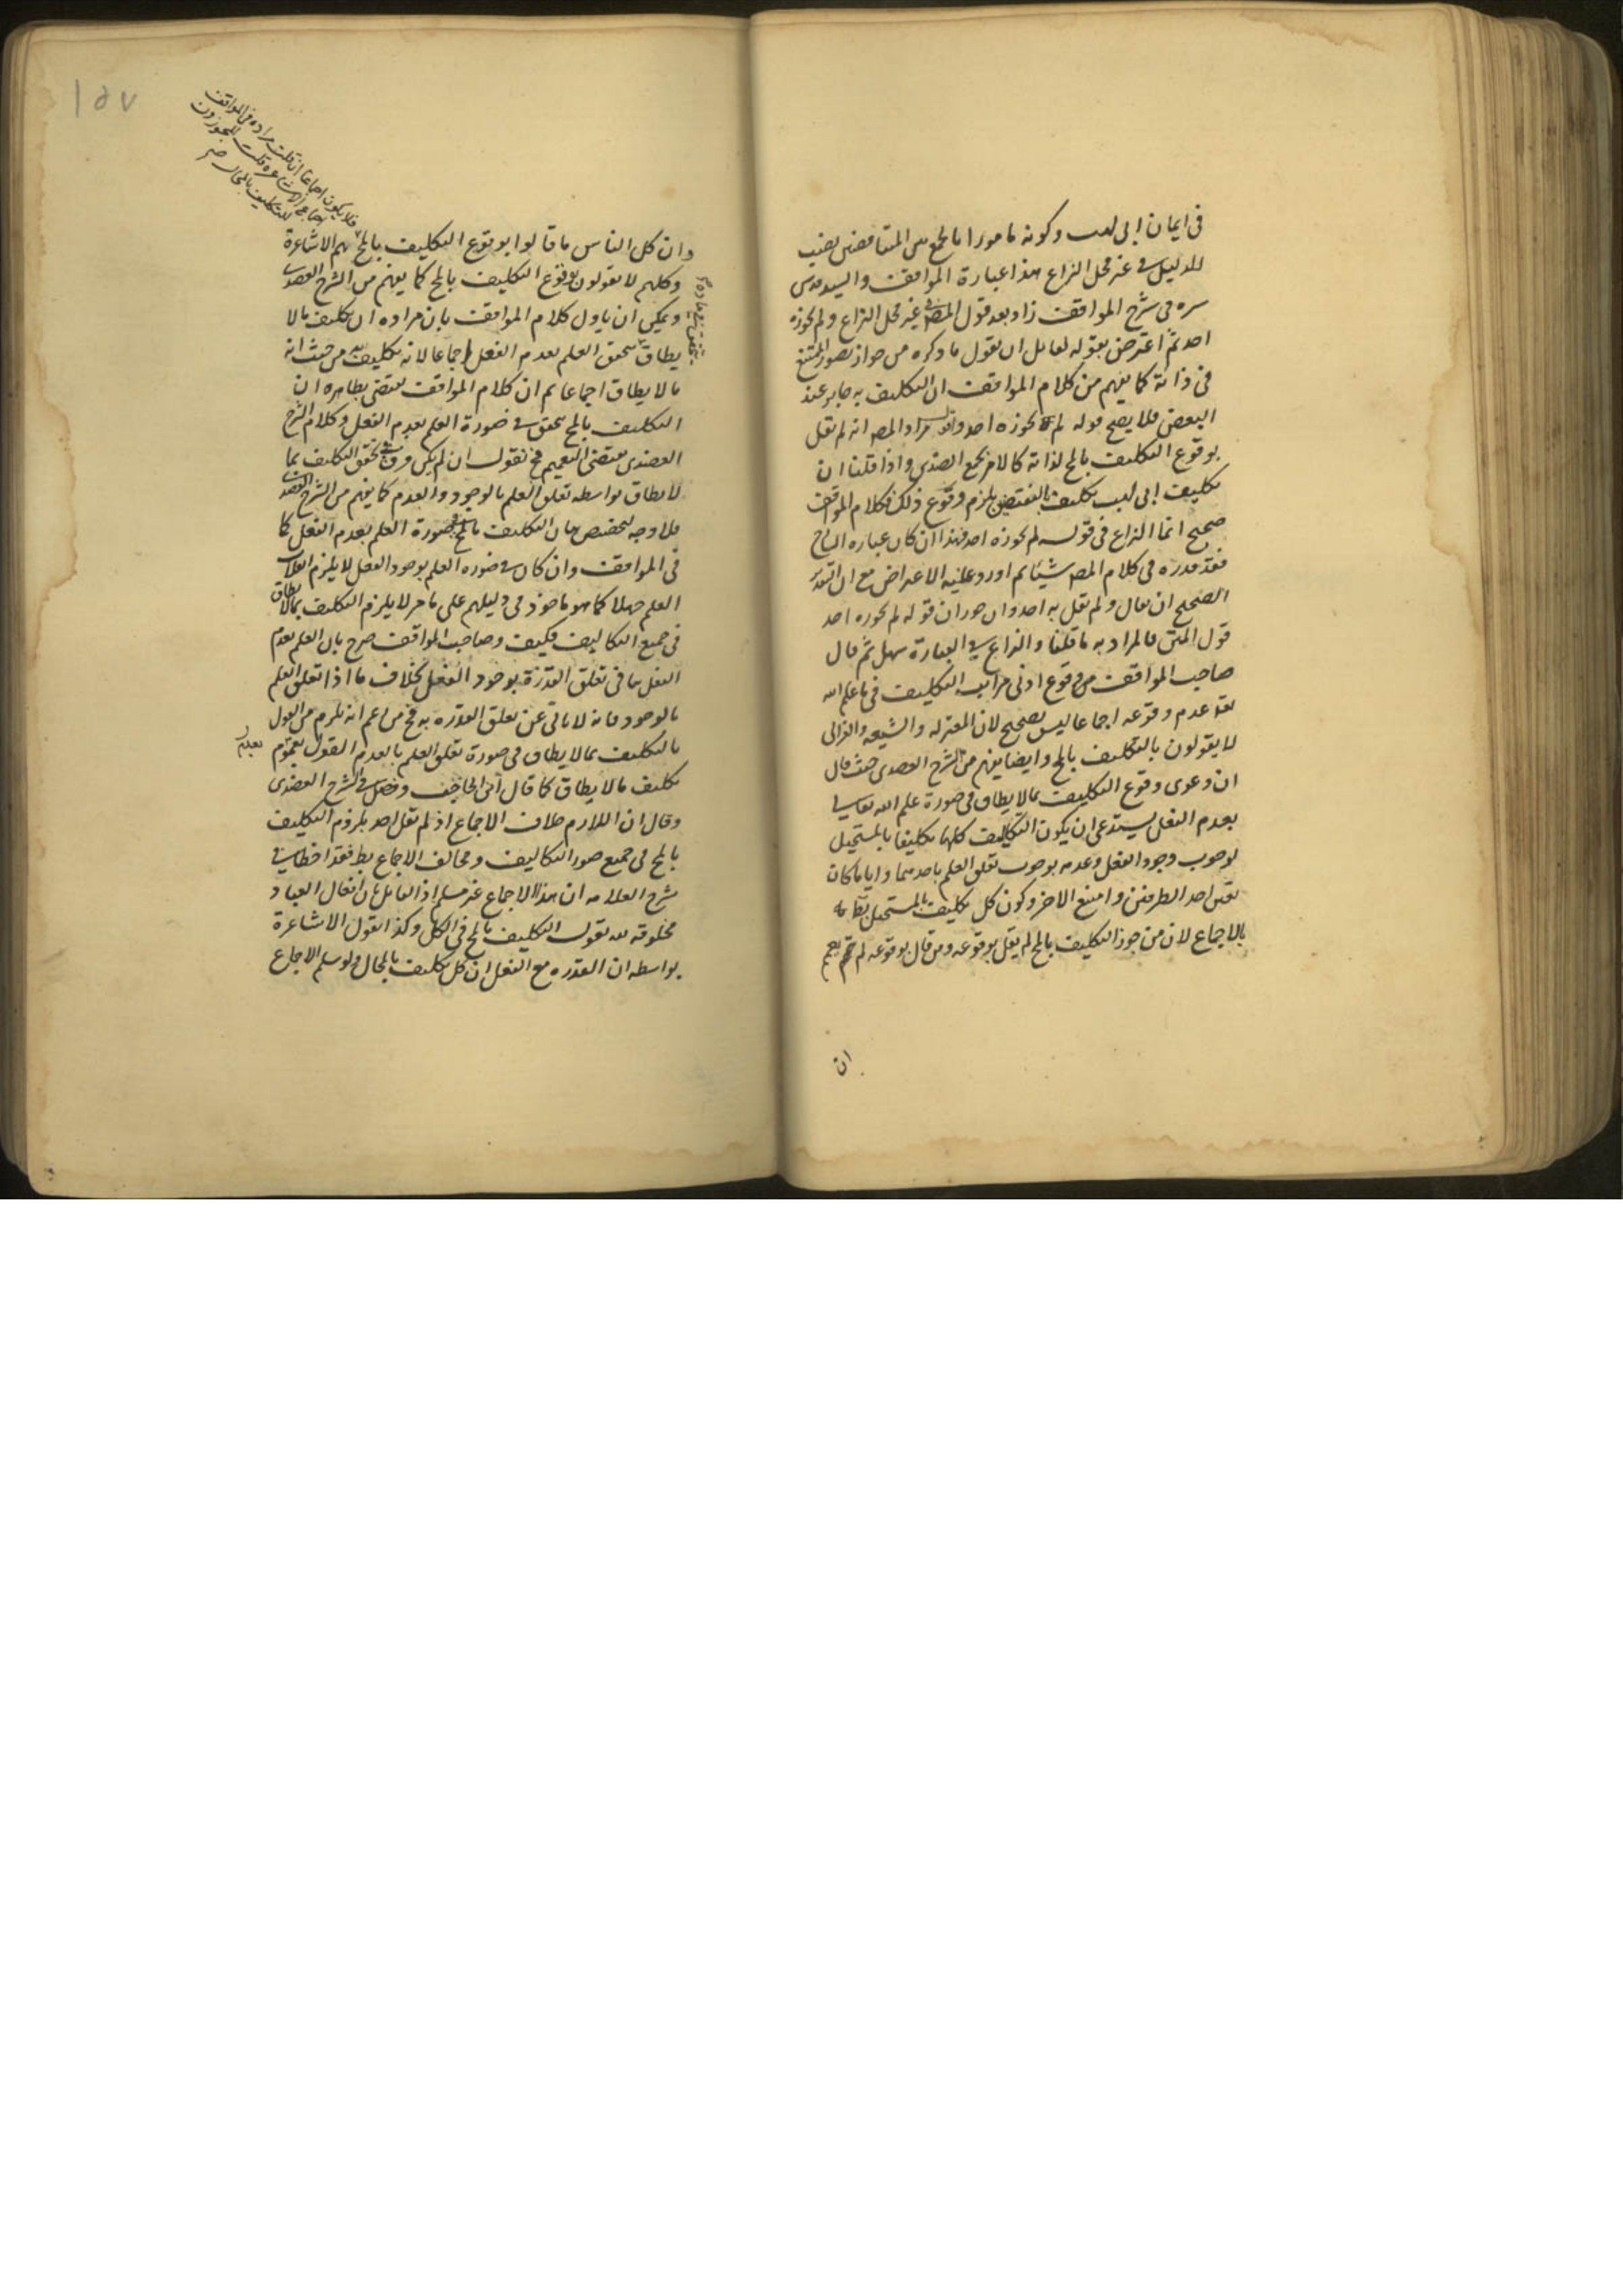 في ايمان ابي لهب وكونه مامورا بالجمع بين المتناقضين نصب
للدليل في غير محل النزاع هذا عبارة المواقف والسيد قدس
سره في شرح المواقف زاد بعد قول المصـ في غير محل النزاع ولم يجوزه
احد ثم اعترض بقوله لقايل ان يقول ما ذكره من جواز تصور الممتنع
في ذاته كما يفهم من كلام المواقف ان التكليف به جايز عند
البعض فلا يصح قوله لم يجوزه احد واقول مراد المصـ انه لم يقل
بوقوع التكليف بالمح لذاته كالامر بجمع الضدين واذا قلنا ان
تكليف ابي لهب تكليف بالنقيضين يلزم وقوع ذلك فكلام المواقف
صحيح انما النزاع في قوله لم يجوزه احد فهذا ان كان عبارة الشارح
فقد قدره في كلام المصـ شيئا ثم اورد عليه الاعتراض مع ان التقدير
الصحيح ان يقال ولم يقل به احد وان جوز ان قوله لم يجوزه احد
قول المتن فالمراد به ما قلنا والنزاع في العبارة سهل ثم قال
صاحب المواقف من وقوع ادنى مراتب التكليف في ما علم الله
تعـ عدم وقوعه اجماعا ليس بصحيح لان المعتزلة والشيعة والغزالي
لا يقولون بالتكليف بالمح وايضا يفهم من الشرح العضدي حيث قال
ان دعوى وقوع التكليف بما لا يطاق في صورة علم الله تعالى
بعدم الفعل يستدعي ان يكون التكاليف كلها تكليفا بالمستحيل
لوجوب وجود الفعل وعدمه بوجوب تعلق العلم باحدهما وايا ما كان
تعين احد الطرفين وامتنع الاخر وكون كل تكليف بالمستحيل بط
بالاجماع لان من جوز التكليف بالمح لم يقل بوقوعه ومن قال بوقوعه لم يعمم
ان
١٥٧
فلا يكون اجماعا ان قلت مراده في المواقف
اجماع الاشاعرة قلت المجوزون
للتكليف بالمحال
وان كل الناس ما قالوا بوقوع التكليف بالمح بل هم الاشاعرة
وكلهم لا يقولون بوقوع التكليف بالمح كما يفهم من الشرح العضدي
ويمكن ان ياول كلام المواقف بان مراده ان تكليف ما لا
يطاق يتحقق العلم بعدم الفعل اجماعا لانه تكليف من حيث انه
ما لا يطاق اجماعا ثم ان كلام المواقف يقتضي بظاهره ان
التكليف بالمح يتحقق في صورة العلم بعدم الفعل وكلام الشرح
العضدي يقتضي التعميم فح نقول ان لم يكن فرق في تحقق التكليف بما
لا يطاق بواسطة تعلق العلم بالوجود والعدم كما يفهم من الشرح العضدي
فلا وجه لتخصيص بيان التكليف بالمح في صورة العلم بعدم الفعل كما
في المواقف وان كان في صورة العلم بوجود الفعل لا يلزم انقلاب
العلم جهلا كما هو ماخوذ في دليلهم على ما مر لا يلزم التكليف بما لا يطاق
في جميع التكاليف فكيف وصاحب المواقف صرح بان العلم بعدم
الفعل ينافي تعلق القدرة بوجود الفعل بخلاف ما اذا تعلق العلم
بالوجود فانه لا ياتي عن تعلق القدرة به فح من زعم انه يلزم من القول
بالتكليف بما لا يطاق في صورة تعلق العلم بالعدم القول بعموم
تكليف ما لا يطاق كما قال ابن الحاجب وفصل في الشرح العضدي
وقال ان اللازم خلاف الاجماع اذ لم يقل احد بلزوم التكليف
بالمح في جميع صور التكاليف ومخالف الاجماع بط فقد اخطا في
شرح العلامه ان هذا الاجماع غير مسلم اذ القايل بان افعال العباد
مخلوقة لله يقول التكليف بالمح في الكل وكذا يقول الاشاعرة
بواسطة ان القدرة مع الفعل ان كل تكليف بالمحال ولو سلم الاجماع